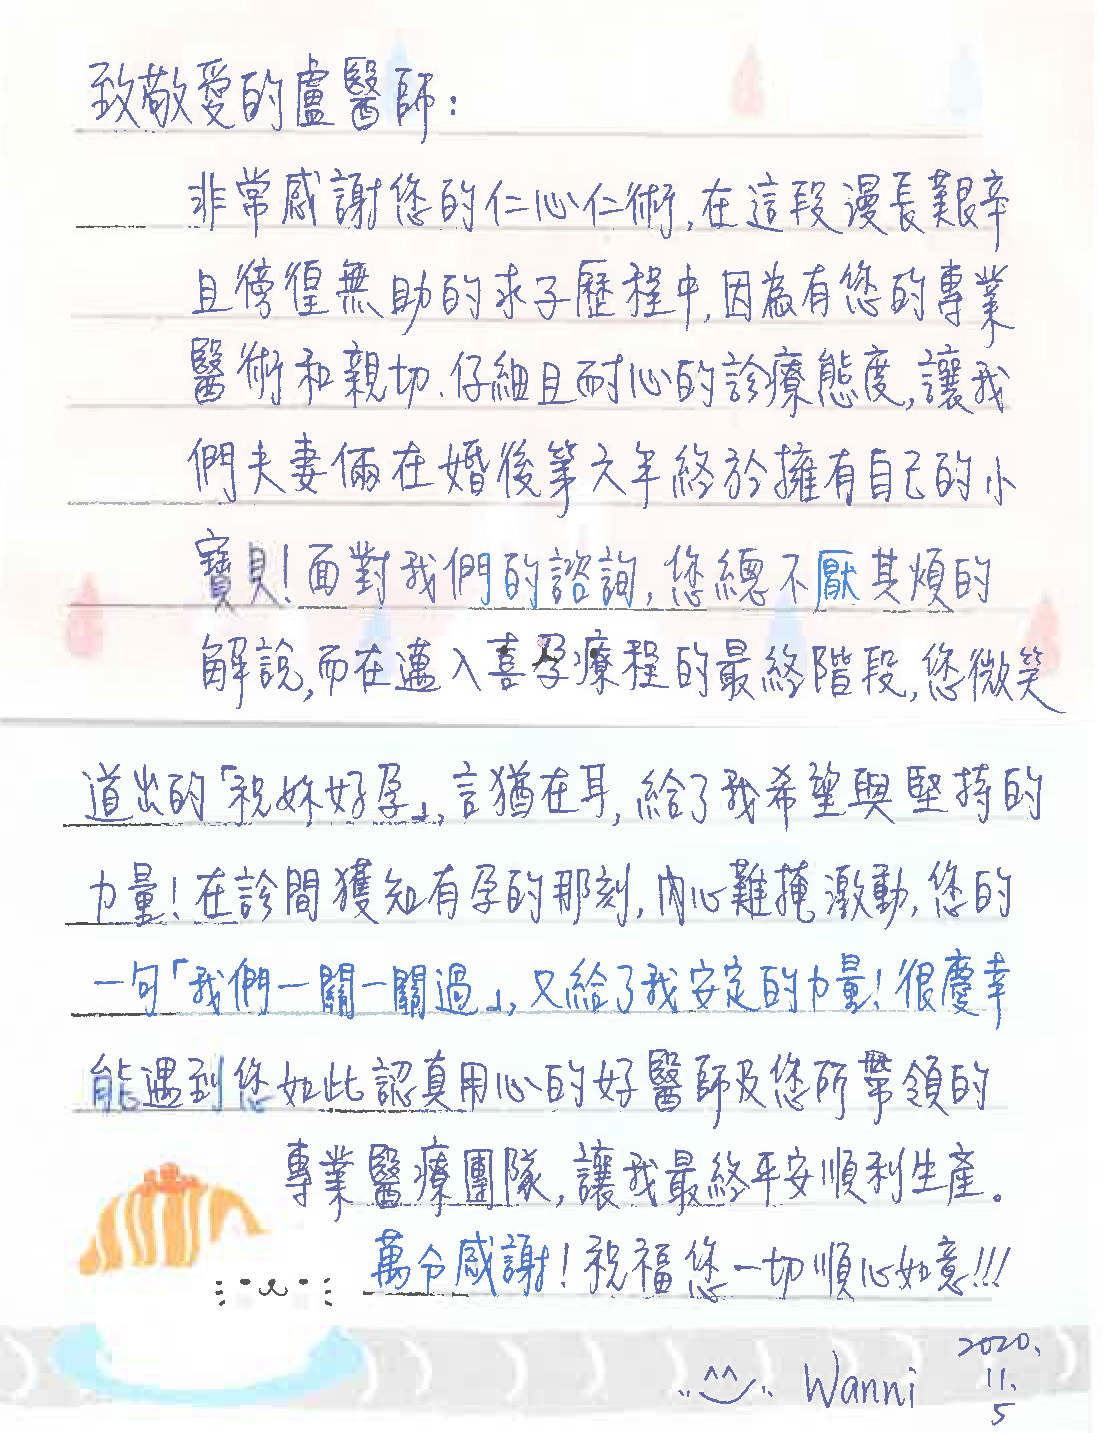 致敬愛的盧醫師:
非常感謝您的仁心仁術,在這段漫長艱辛
且徬徨無助的求子歷程中,因為有您的專業
醫術和親切、仔細且耐心的診療態度,讓我
們夫妻倆在婚後第六年終於擁有自己的小
寶貝!面對我們的諮詢,您總不厭其煩的
解說,而在邁入喜孕療程的最終階段,您微笑
道出的「祝妳好孕」,言猶在耳,給了我希望與堅持的
力量!在診間獲知有孕的那刻,內心難掩激動,您的
一句「我們一關一關過」,又給了我安定的力量!很慶幸
能遇到您如此認真用心的好醫師及您所帶領的
專業醫療團隊,讓我最終平安順利生產。
萬分感謝!祝福您一切順心如意!!!
Wanni
2020.
11.
5